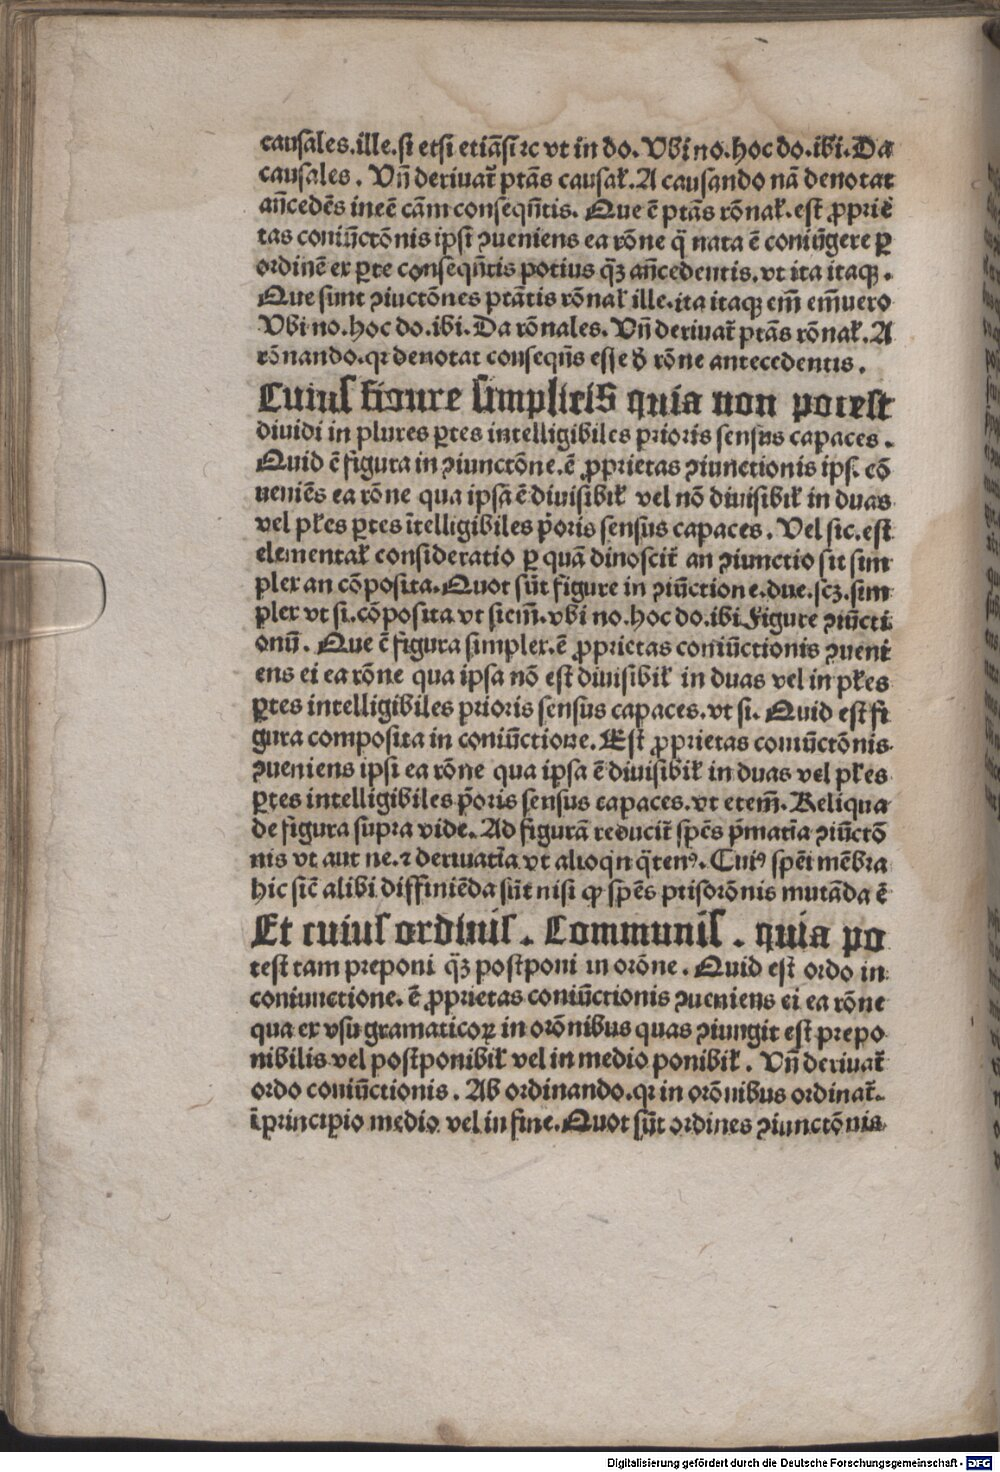 causales.ille.si etsi etiãsi ⁊c vt in do. Vbi no.hoc do.ibi.Da
causales. Vñ deriuat᷑ ptãs causaƚ. A causando nã denotat
añcedẽs ineẽ cãm conseqñtis. Que ẽ ptãs rõnaƚ.est ꝓprie
tas coniũctõnis ipsi ꝯueniens ea rõne q̃ nata ẽ coniũgere ꝑ
ordinẽ ex ꝑte conseqñtis potius q̃ꝫ añcedentis.vt ita itaqꝫ.
Que sunt ꝯiuctõnes ptãtis rõnaƚ ille.ita itaqꝫ em̃ em̃uero
Vbi no.hoc do.ibi.Da rõnales. Vñ deriuat᷑ ptãs rõnaƚ. A
rõnando.qꝛ denotat conseqñs esse ď rõne antecedentis.
Cuius figure simplicis quia non potest
diuidi in plures ꝑtes intelligibiles prioris sensus capaces.
Quid ẽ figura in ꝯiunctõne.ẽ ꝓprietas ꝯiunctionis ipsi cõ
ueniẽs ea rõne qua ipsa ẽ diuisibiƚ vel nõ diuisibiƚ in duas
vel pƚes ꝑtes ĩtelligibiles p̃oris sensus capaces. Vel sic.est
elementaƚ consideratio ꝑ quã dinoscit᷑ an ꝯiunctio sit sim
plex an cõposita. Quot sũt figure in ꝯiũctione.due.scꝫ.sim
plex vt si.cõposita vt siem̃.vbi no.hoc do.ibi Figure ꝯiũcti
onũ. Que ẽ figura simplex.ẽ ꝓprietas coniũctionis ꝯueni
ens ei ea rõne qua ipsa nõ est diuisibiƚ in duas vel in pƚes
ꝑtes intelligibiles prioris sensus capaces.vt si. Quid est fi
gura composita in coniũctione. Est ꝓprietas coniũctõnis
ꝯueniens ipsi ea rõne qua ipsa ẽ diuisibiƚ in duas vel pƚes
ꝑtes intelligibiles p̃oris sensus capaces.vt etem̃. Reliqua
de figura supra vide. Ad figurã reducit᷑ spẽs p̃matĩa ꝯiũctõ
nis vt aut ne.⁊ deriuatĩa vt alioqn q̃tenꝰ. Cuiꝰ spẽi mẽbra
hic sic̃ alibi diffiniẽda sũt nisi ꝙ spẽs ptisorõnis mutãda ẽ
Et cuius ordinis. Communis. quia po
test tam preponi q̃ꝫ postponi in orõne. Quid est ordo in
coniunctione. ẽ ꝓprietas coniũctionis ꝯueniens ei ea rõne
qua ex vsu gramaticoꝝ in orõnibus quas ꝯiungit est prepo
nibilis vel postponibiƚ vel in medio ponibiƚ. Vñ deriuat᷑
ordo coniũctionis. Ab ordinando.qꝛ in orõnibus ordinat᷑.
ĩ principio medio vel in fine. Quot sũt ordines ꝯiunctõnis
Digitalisierung gefördert durch die Deutsche Forschungsgemeinschaft - DFG